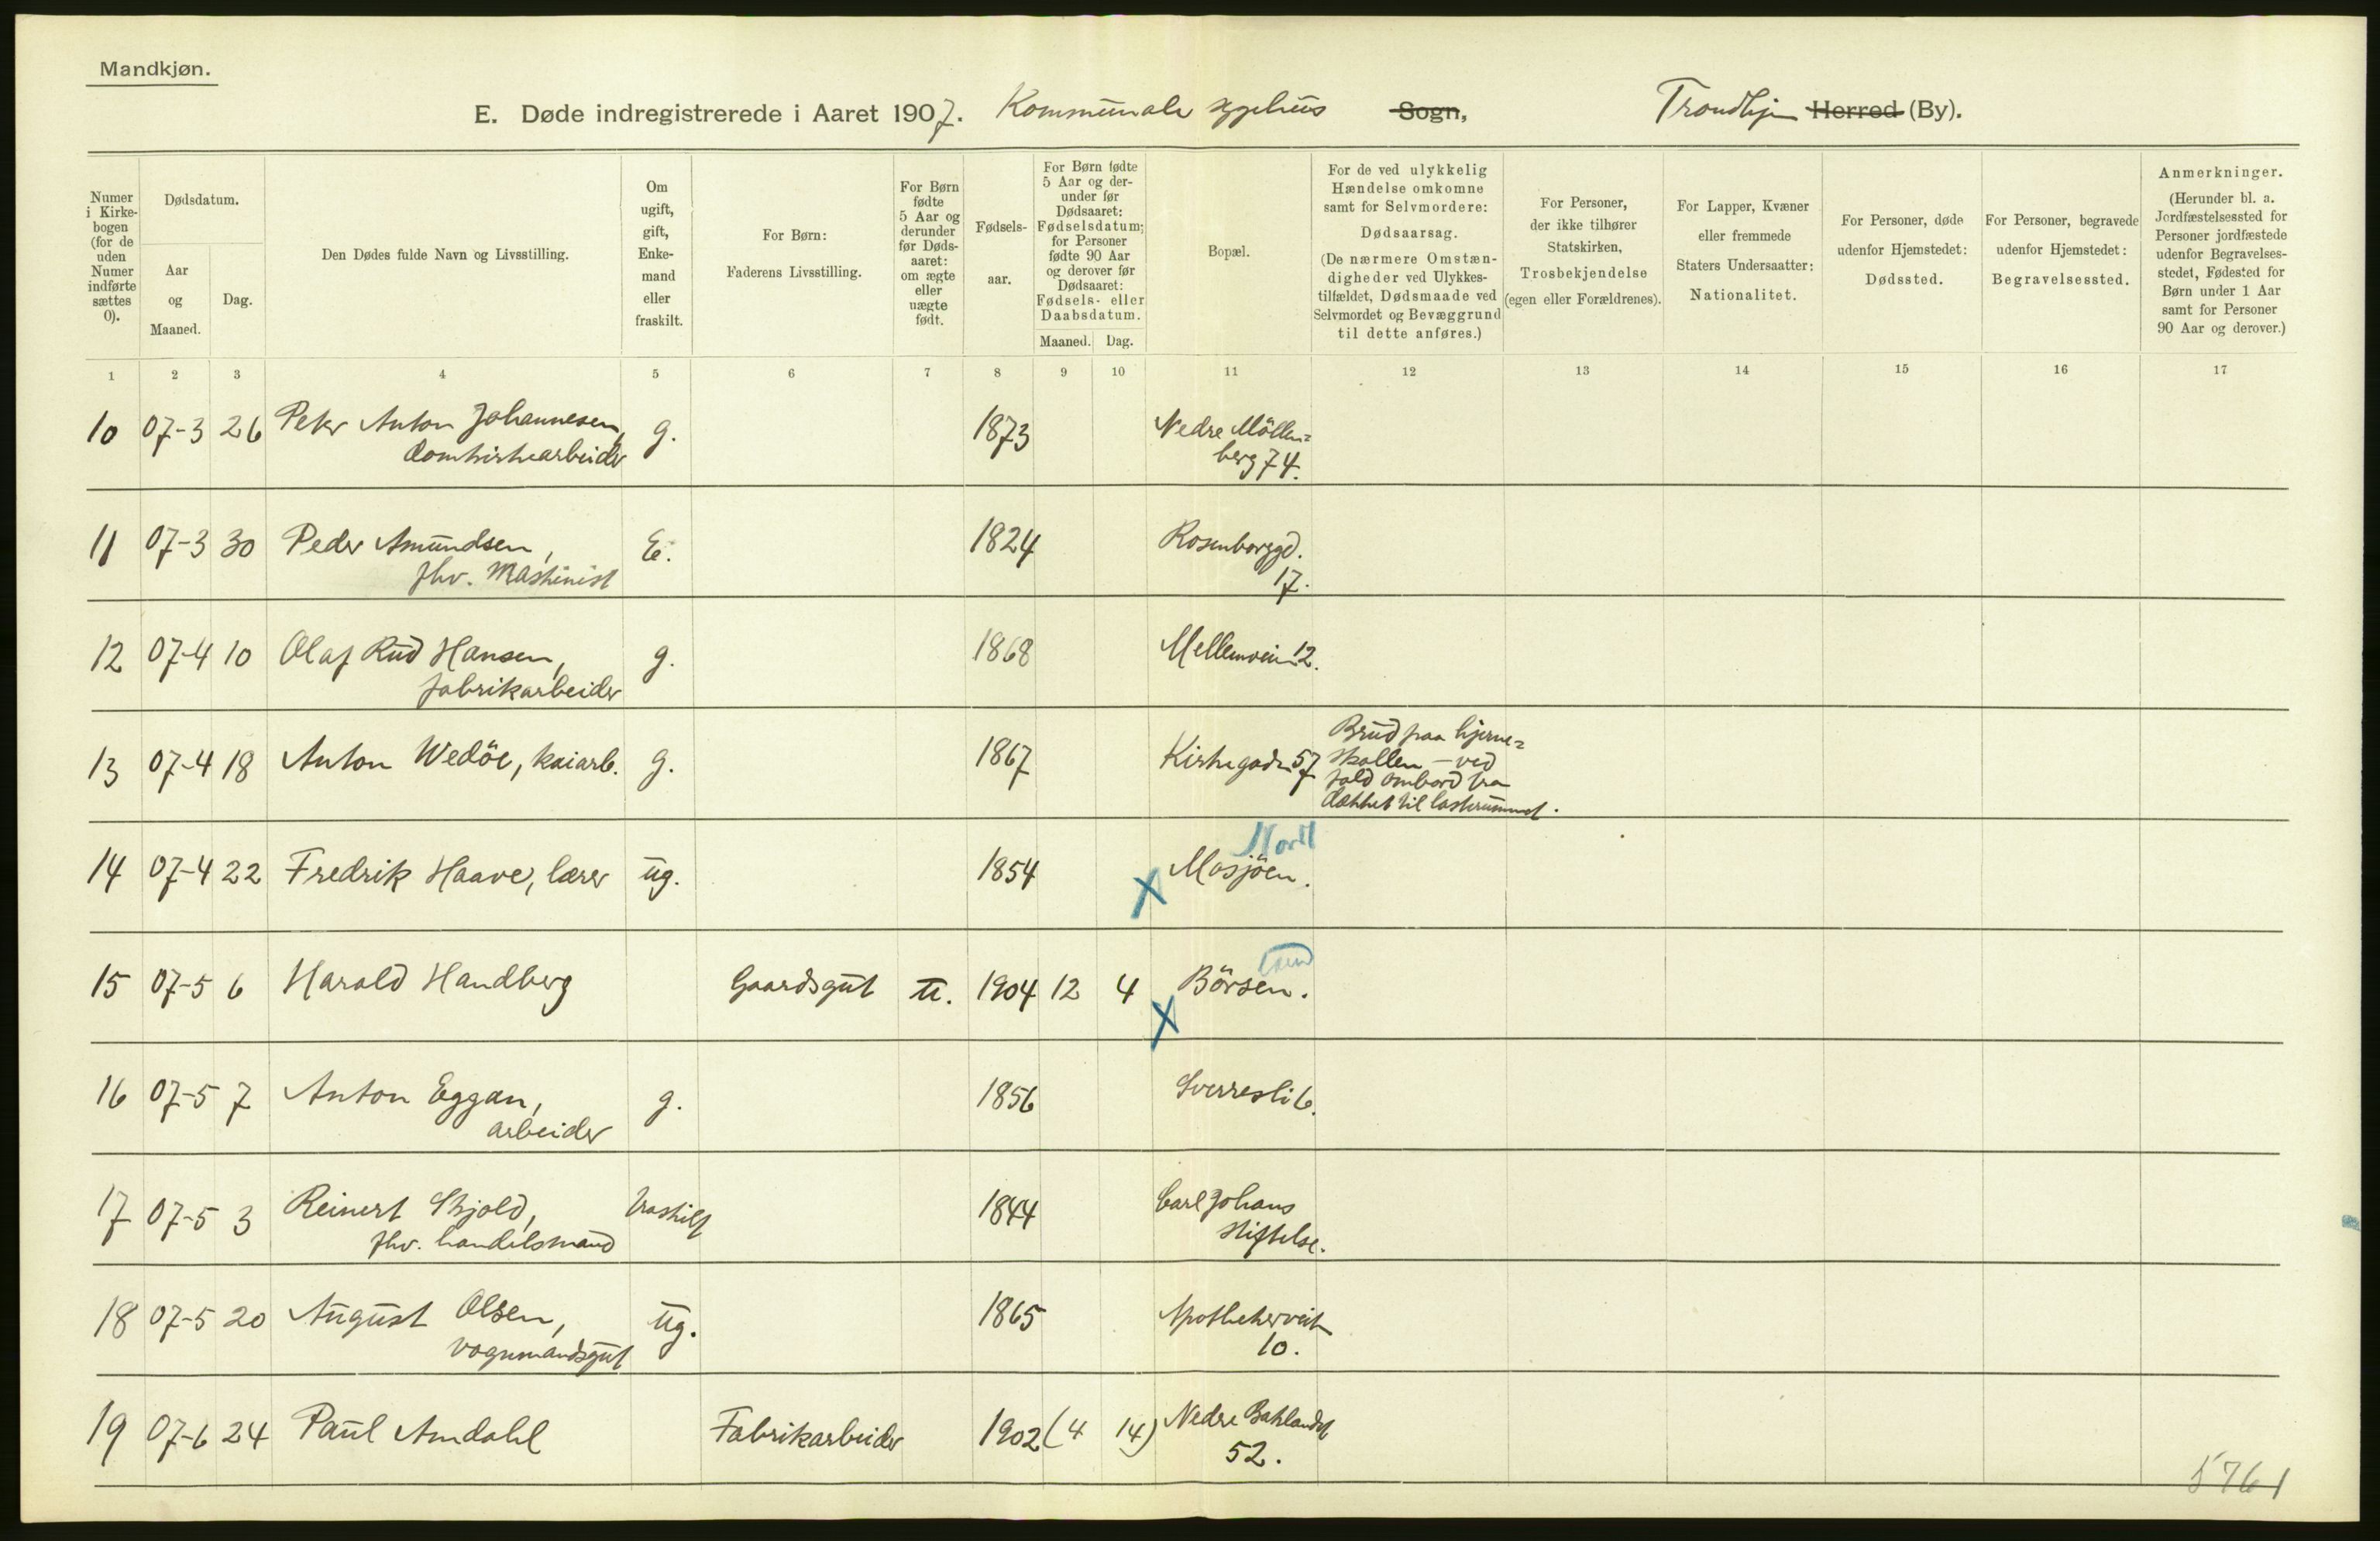 Mandkjøn.
E. Døde indregistrerede i Aaret 1907. Kommunale sygehus Sogn, Trondhjem Herred (By).
Numer i Kirkebogen (for de uden Numer indførte sættes 0).
Dødsdatum.
Aar og Maaned.
Dag.
Den Dødes fulde Navn og Livsstilling.
Om ugift, gift, Enkemand eller fraskilt.
For Børn: Faderens Livsstilling.
For Børn fødte 5 Aar og derunder før Dødsaaret: om ægte eller uægte født.
Fødselsaar.
For Børn fødte 5 Aar og derunder før Dødsaaret: Fødselsdatum; for Personer fødte 90 Aar og derover før Dødsaaret: Fødsels- eller Daabsdatum.
Maaned. Dag.
Bopæl.
For de ved ulykkelig Hændelse omkomne samt for Selvmordere: Dødsaarsag. (De nærmere Omstændigheder ved Ulykkestilfældet, Dødsmaade ved Selvmordet og Bevæggrund til dette anføres.)
For Personer, der ikke tilhører Statskirken, Trosbekjendelse (egen eller Forældrenes).
For Lapper, Kvæner eller fremmede Staters Undersaatter: Nationalitet.
For Personer, døde udenfor Hjemstedet: Dødssted.
For Personer, begravede udenfor Hjemstedet: Begravelsessted.
Anmerkninger. (Herunder bl. a. Jordfæstelsessted for Personer jordfæstede udenfor Begravelsesstedet, Fødested for Børn under 1 Aar samt for Personer 90 Aar og derover.)
1 2 3 4 5 6 7 8 9 10 11 12 13 14 15 16 17
10 07-3 26 Peter Anton Johannesen, g. 1873 Nedre Möllen=
domkirkearbeider berg 74.
11 07-3 30 Peder Amundsen, E. 1824 Rosenborggd.
fhv. Maskinist 17.
12 07-4 10 Olaf Rud Hansen, g. 1868 Mellemvein 12.
fabrikarbeider
13 07-4 18 Anton Wedöe, kaiarb. g. 1867 Kirkegaden 57 Brud paa hjerne=
skallen - ved
fald ombord fra
dækket til lasterummet.
14 07-4 22 Fredrik Haave, lærer ug. 1854 X Mosjöen. Nordl
15 07-5 6 Harald Handberg Gaardsgut u. 1904 12 4 X Börsen.
16 07-5 7 Anton Eggan, g. 1856 Sverresli 6.
arbeider
17 07-5 3 Reinert Skjold, fraskilt 1844 Carl Johans
fhv. handelsmand stiftelse.
18 07-5 20 August Olsen, ug. 1865 Apothekerveiten
vognmandsgut 10.
19 07-6 24 Paul Amdahl Fabrikarbeider 1902 (4 14) Nedre Baklandet
52.
5761